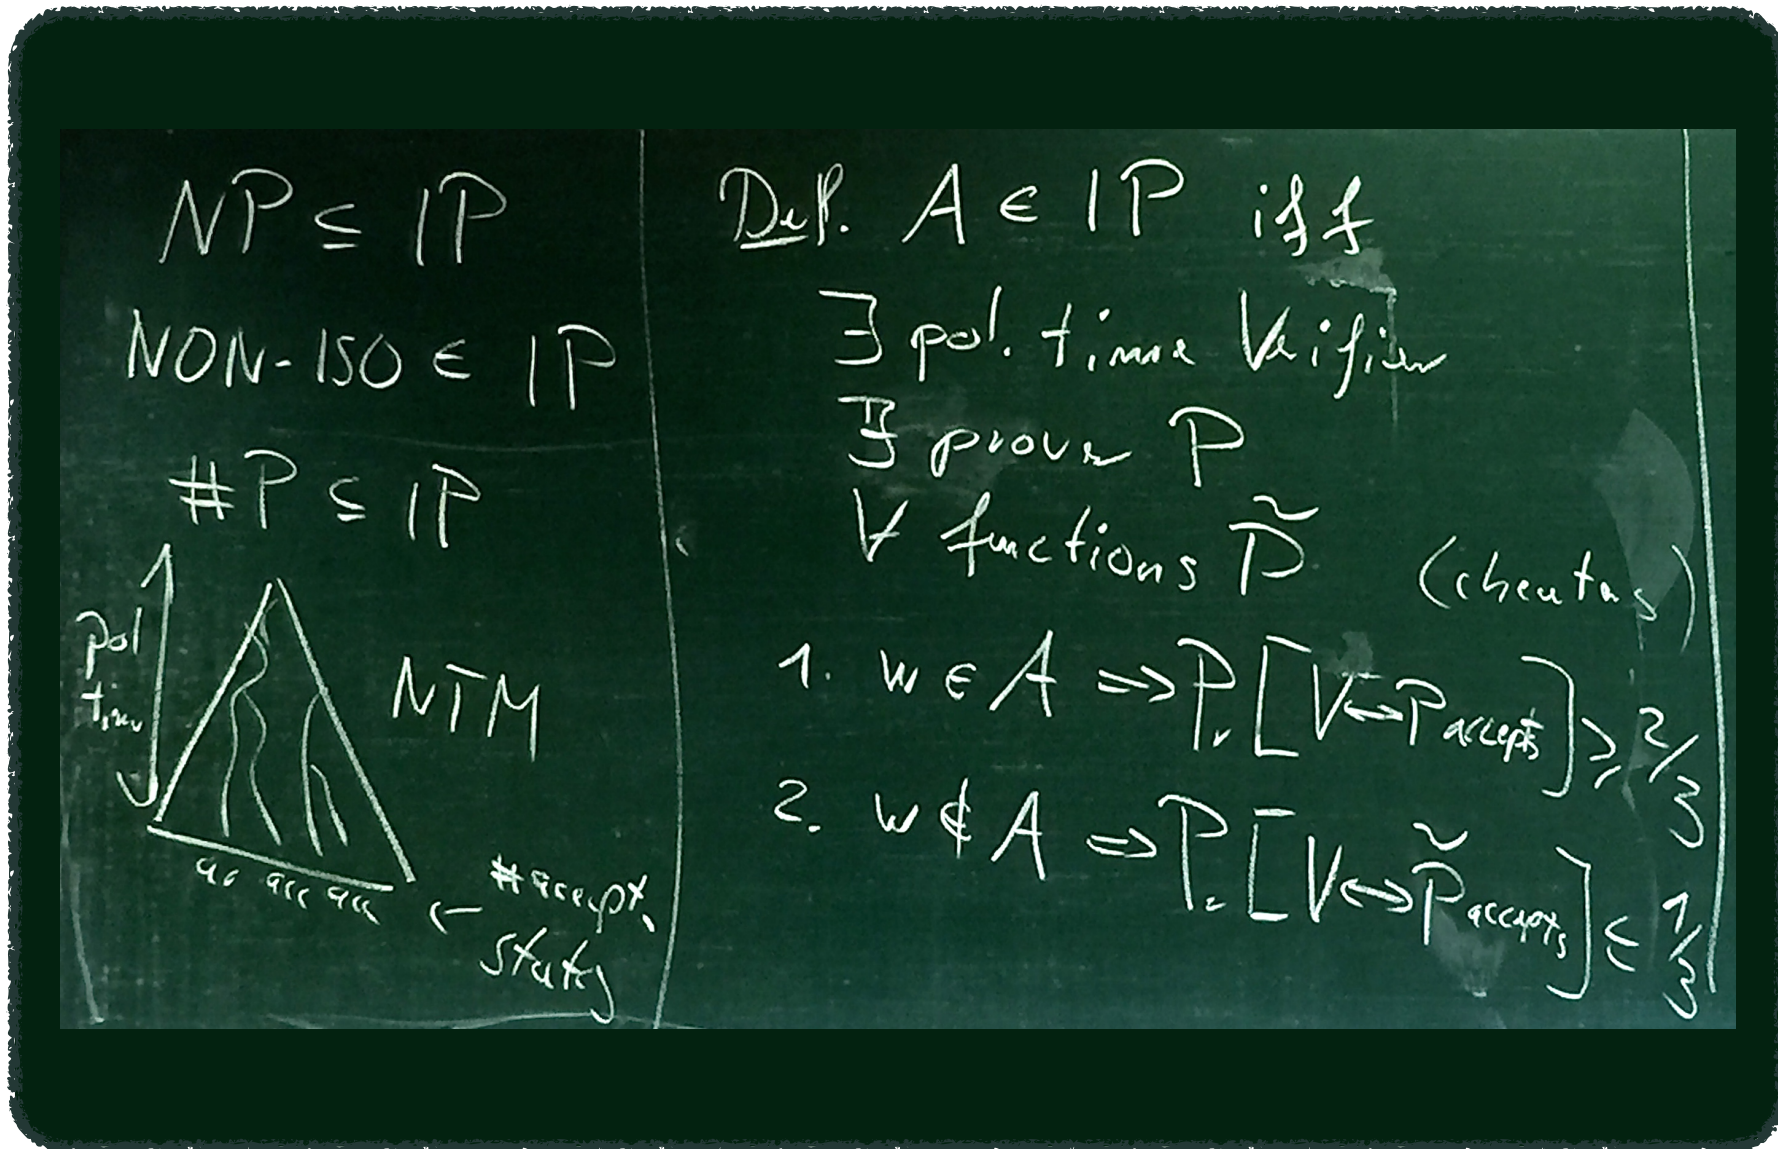 NP ⊆ IP
NON-ISO ∈ IP
#P ⊆ IP
pol
time
NTM
acc acc acc
← #accept.
states
Def. A ∈ IP iff
∃ pol. time Verifier
∃ prover P
∀ functions P̃ (cheaters)
1. w ∈ A ⇒ Pr [V↔P accepts] ≥ 2/3
2. w ∉ A ⇒ Pr [V↔P̃ accepts] ≤ 1/3